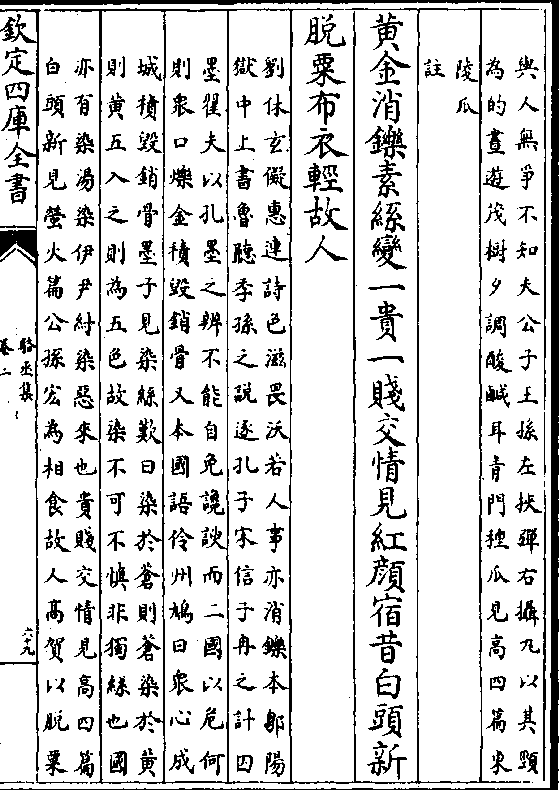 與人無爭不知夫公子王孫左挾彈右攝丸以其頸
為的晝遊茂樹夕調酸鹹耳青門種瓜見高四篇東
陵瓜
註
黄金消鑠素絲變一貴一賤交情見紅顔宿昔白頭新
脫粟布衣輕故人
劉休玄儗惠連詩色滋畏沃若人事亦消鑠本鄒陽
獄中上書魯聽季孫之說逐孔子宋信子冉之計四
墨翟夫以孔墨之辨不能自免讒諛而二國以危何
則衆口爍金積毀銷骨又本國語伶州鳩曰衆心成
城積毀銷骨墨子見染絲歎曰染於蒼則蒼染於黄
則黄五入之則為五色故染不可不慎非獨絲也國
亦有染湯染伊尹紂染惡來也貴賤交情見高四篇
白頭新見螢火篇公孫宏為相食故人高賀以脫粟
欽定四庫全書
駱丞集
卷二
六十九